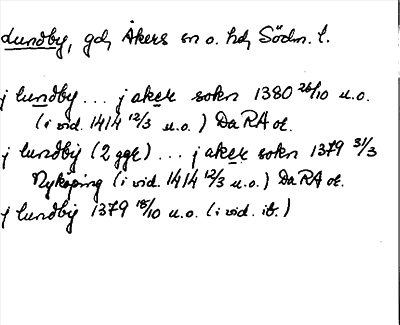 Lundby, gd, Åkers sn o. hd, Södm. l.
j lundby ... j aker sokn 1380 26/10 u.o.
(i vid. 1414 12/3 u.o.) DaRA or.
j lundby (2 ggr) ... j aker sokn 1379 31/3
Nyköping (i vid. 1414 12/3 u.o.) DaRA or.
j lundby 1379 18/10 u.o. (i vid. ib.)